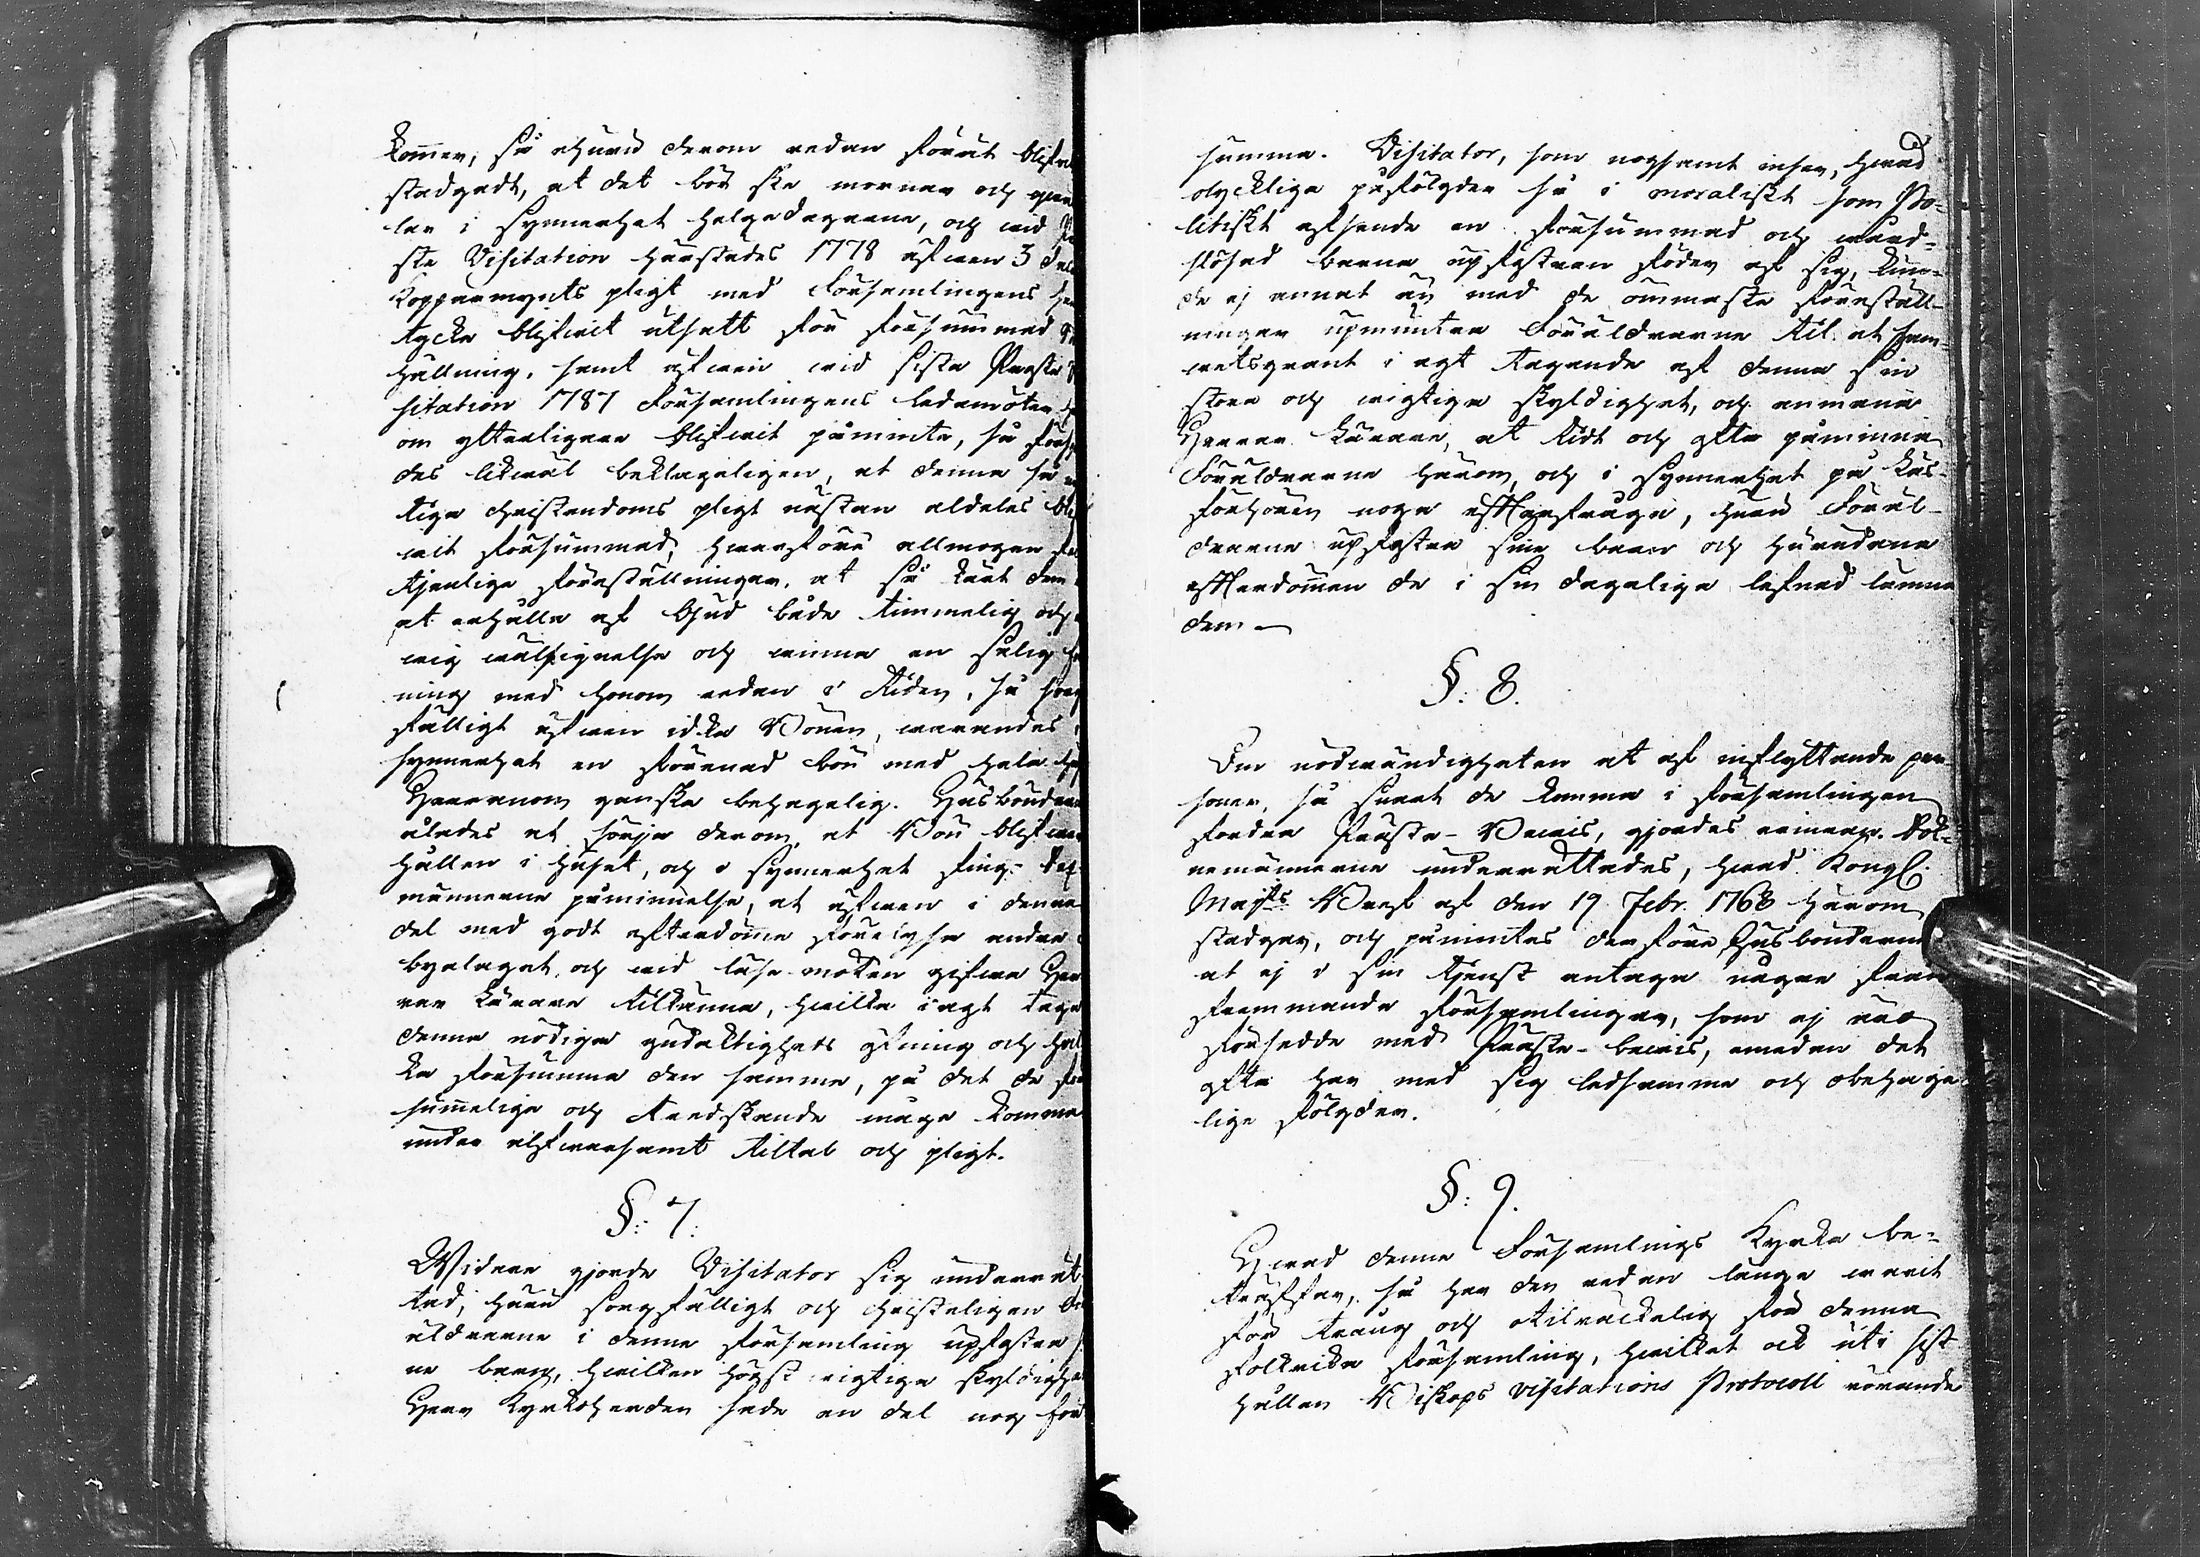 kom̄er, så ehuru derom redan förut blifvit
stadgadt, at det bör ske mornar och
lar i synnerhet helgedagarne, och wid
ste Visitation härstädes 1778 äfwen 3 dal
Kopparmynts pligt med Församlingens
tycke blifwit utsatt för försummad
hållning, samt äfwen wid sista Prosta
sitation 1787 Församlingens ledamöter
om ytterligare blifwit påminte, så
des likwäl beklageligen, at denna så
tiga christendoms pligt nästan aldeles
wit försummad, hwarföre allmogen
tjenliga föreställningar, at så kärt dem
at erhålla af Gud både timmelig och
wig wälsignelse och winna en salig
ning med honom redan i tiden, så
fälligt äfwen idka Bönen, warandes
synnerhet en förenad bön med hela
Herranom ganska behagelig. Husbönderne
ålades at sörja derom, at Bön blifwer
hållen i huset, och i synnerhet fingo
männerne påminnelse, at äfwen i denna
del med godt efterdöme förelysa andra
byalaget, och wid läse-möten gifwa Her
rar Lärare tilkänna, hwilka i agt taga
denna nödiga gudaktighets öfning och
ka försumma den samma, på det de
sum̄elige och tredskande måga komma
under alfwarsamt tiltal och pligt.
§: 7.
Widare gjorde Visitator sig underrät
tad, huru sorgfälligt och christeligen
äldrarne i denna församling upfostra
ne barn, hwilken högst wigtiga skyldighe
Herr Kyrkoherden sade en del nog för
summa. Visitator, som nogsamt inser, hwad
olyckliga påfölgder så i moraliskt som Po-
litiskt afseende en försummad och wård-
slösad barna upfostran föder af sig, kun-
de ej annat än med de ömmaste föreställ-
ningar upmuntra Föräldrarne til at sam-
wetsgrant i agt tagande af denna sin
stora och wigtiga skyldighet, och anmana
Herrar Lärare, at tidt och ofta påminna
Föräldrarne härom, och i synnerhet på Läs-
förhören noga efterfråga, huru Föräl-
drarne upfostra sine barn och hurudana
efterdömen de i sin dageliga lefnad lämna
dem.
§: 8.
Om nödwändigheten at af inflyttande per-
soner, så snart de komma i församlingen
fordra Präste-Bewis, gjordes
nemännerne underrättades, hwad Kongl.
Majts Bref af den 19 Febr. 1768 härom
stadgar, och påmintes derföre Husbönderne
at ej i sin tjenst antaga någre från
främmande församlingar, som ej äro
försedde med Präste-bewis, emedan det
ofta har med sig ledsamma och obehage-
lige fölgder.
§: 9.
Hwad denna Församlings Kyrka be-
träffar, så har den redan länge warit
för trång och otilräckelig för denna
folkrika församling, hwilket ock uti sist
hållen Biskops visitations Protocoll rörande